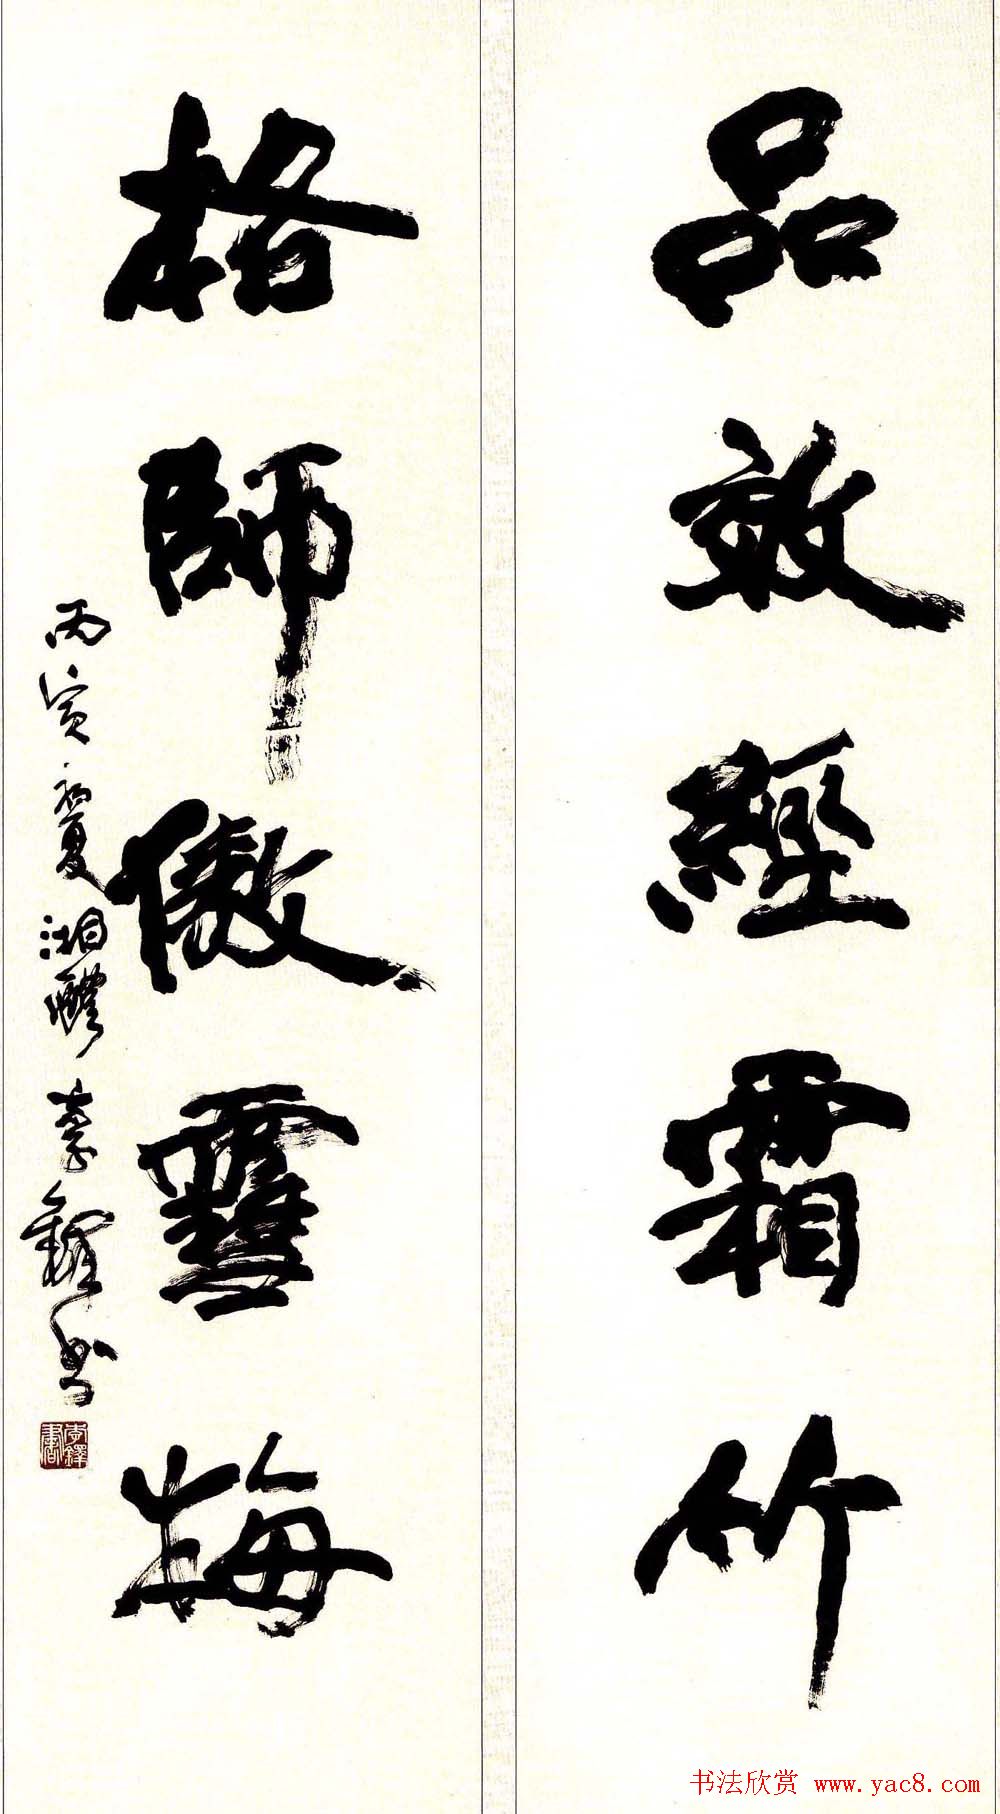 品效經霜竹
格師傲雪梅
丙寅初夏湘醴李鐸書
李鐸書
书法欣赏 www.yac8.com